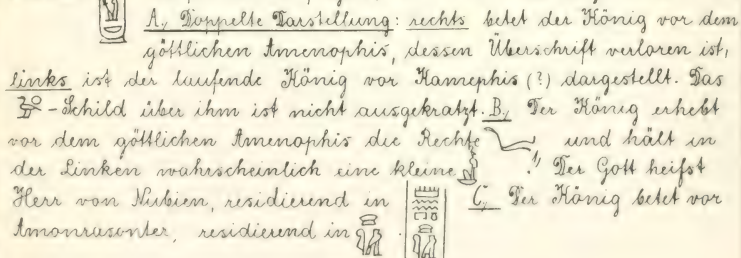 A., Doppelte Darstellung: rechts betet der König vor dem
göttlichen Amenophis, dessen Überschrift verloren ist,
links ist der laufende König vor Kamephis (?) dargestellt. Das
-Schild über ihm ist nicht ausgekratzt. B., Der König erhebt
vor dem göttlichen Amenophis die Rechte und hält in
der Linken wahrscheinlich eine kleine !! Der Gott heifst
Herr von Nubien, residierend in C., Der König betet vor
Amonrasonter, residierend in .